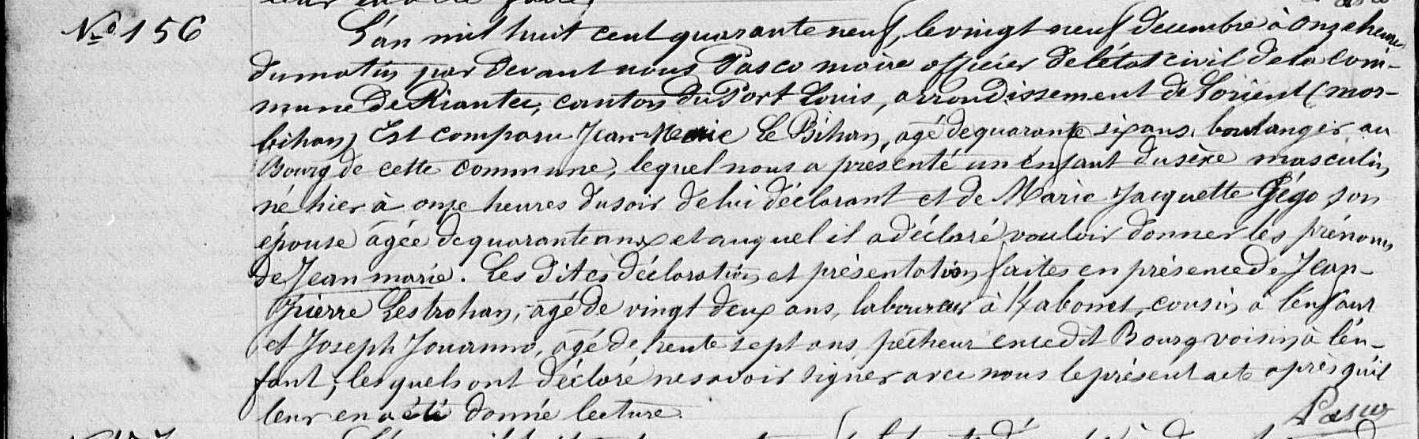 leur en a été faite
Pasco
No 156
L'an mil huit cent quarante neuf, le vingt neuf décembre à onze heures
du matin par devant nous Pasco maire officier de l'état civil de la com-
mune de Riantec, canton du Port Louis, arrondissement de Lorient (mor-
bihan) Est comparu Jean-Marie Le Bihan, agé de quarante six ans, boulanger au
Bourg de cette commune, lequel nous a présenté un enfant du sexe masculin,
né hier à onze heures du soir de lui déclarant et de Marie Jacquette Gégo son
épouse âgée de quarante ans et auquel il a déclaré vouloir donner les prénoms
de Jean marie. Les dites déclaration et présentation faites en présence de Jean-
Pierre Lestrohan, agé de vingt deux ans, laboureur à Kabonet, cousin à l'enfant
et Joseph Jouanno, agé de trente sept ans, pêcheur en cedit Bourg voisin à l'en-
fant; lesquels ont déclaré ne savoir signer avec nous le présent acte après qu'il
leur en a été donné lecture.
Pasco